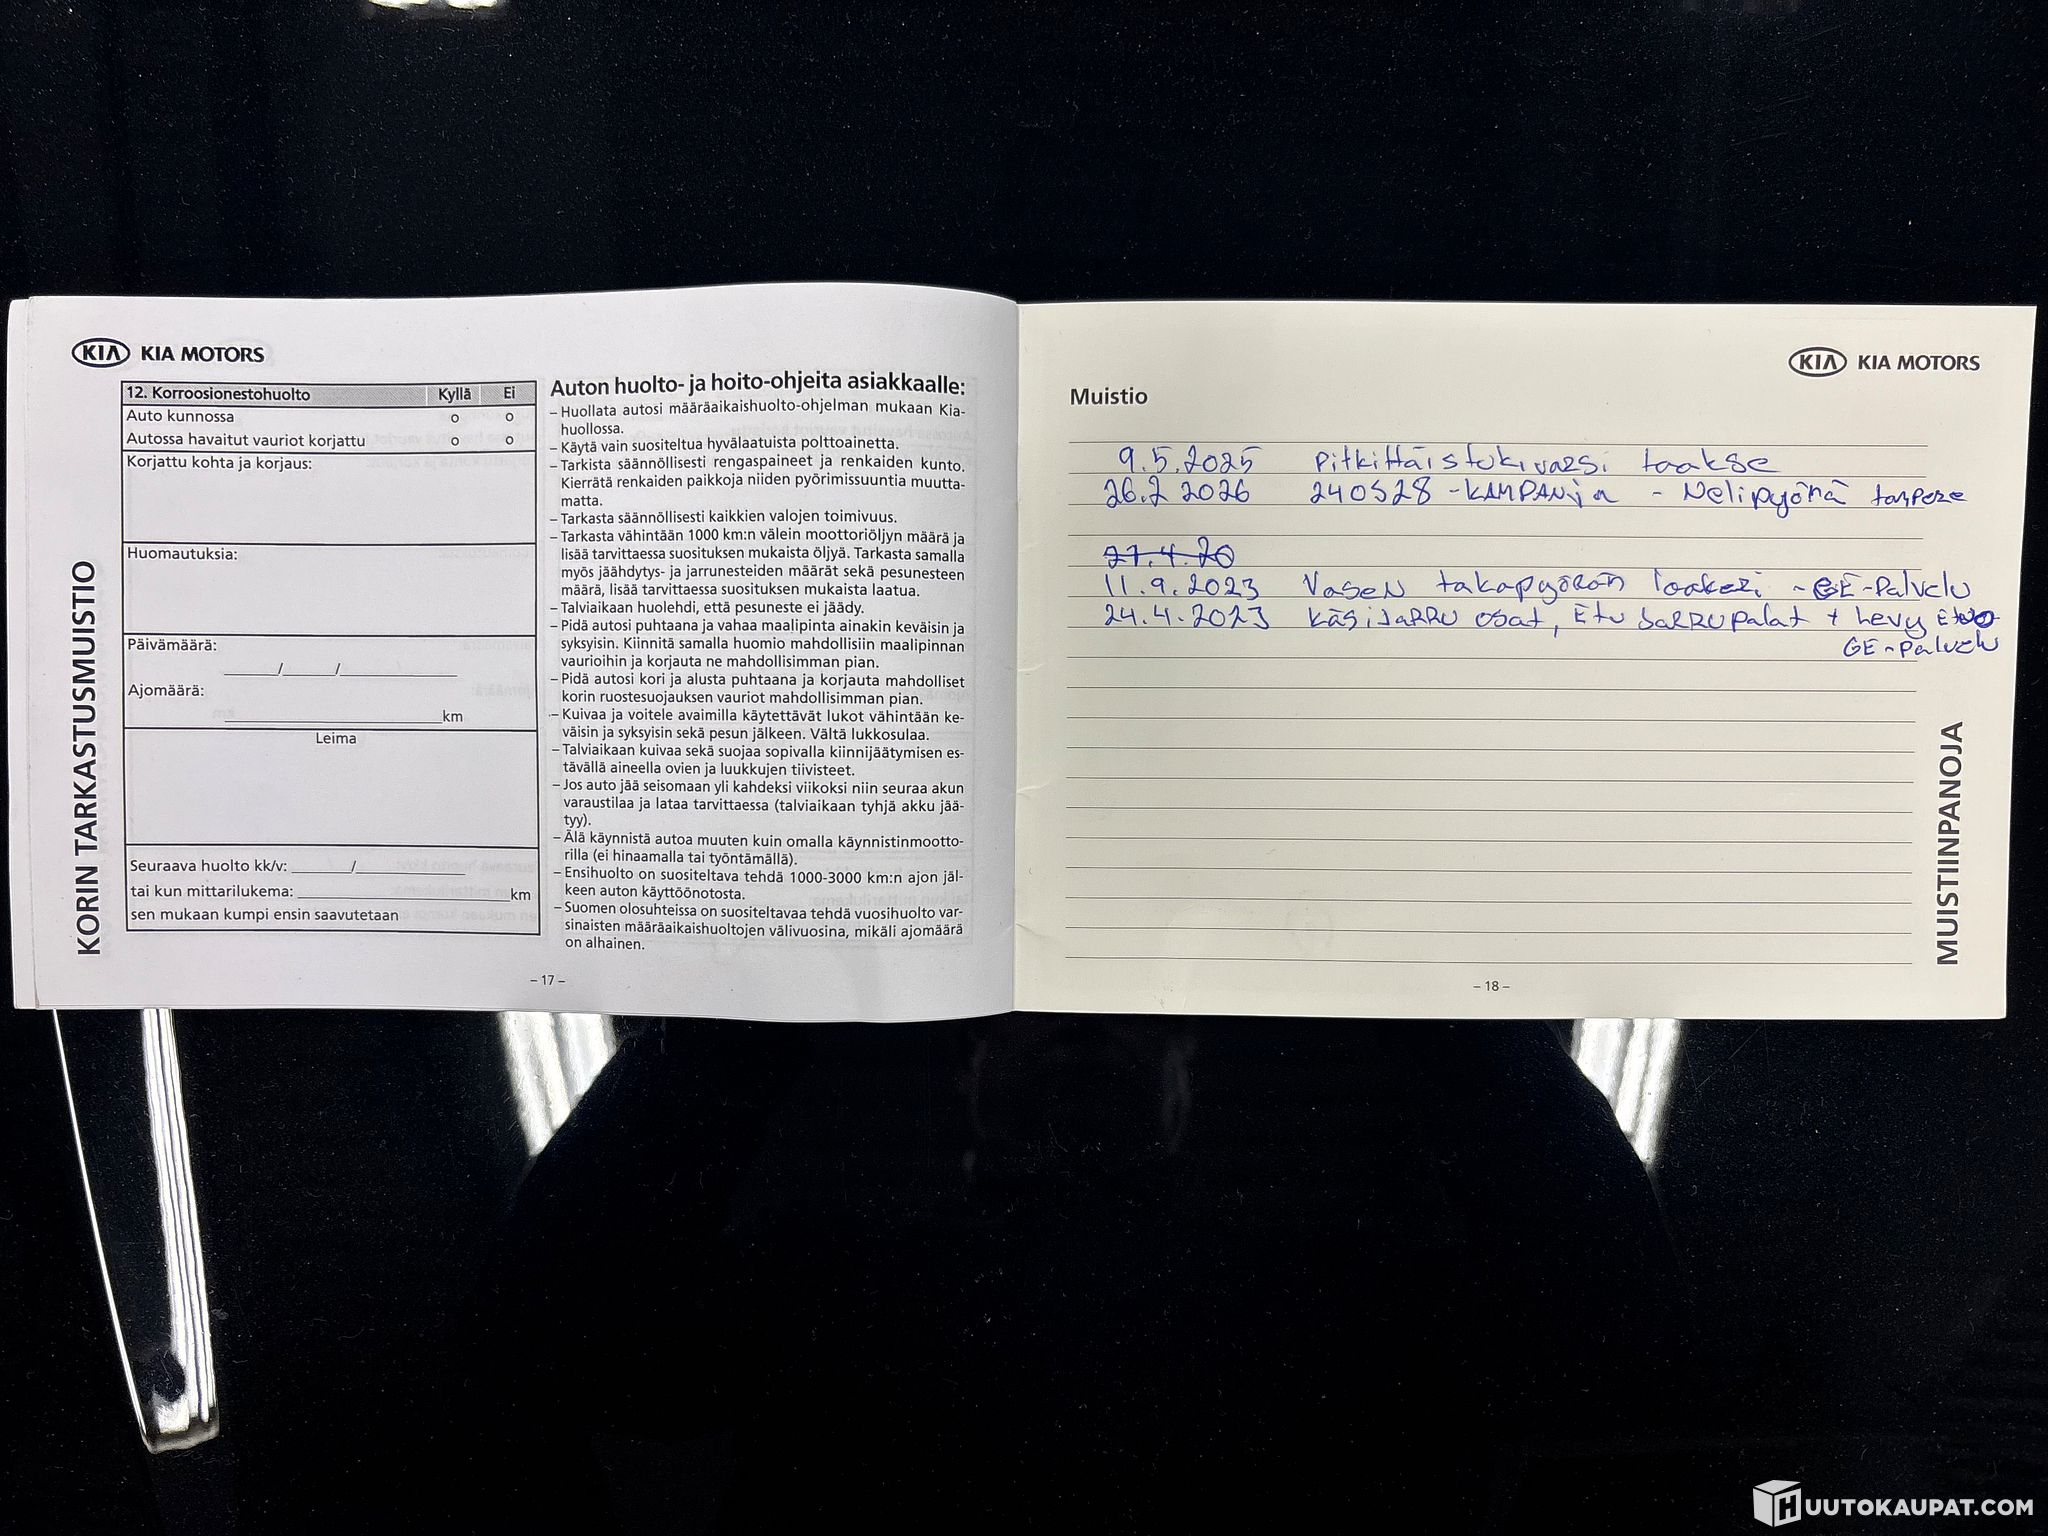 KIA KIA MOTORS
KORIN TARKASTUSMUISTIO
12. Korroosionestohuolto Kyllä Ei
Auto kunnossa o o
Autossa havaitut vauriot korjattu o o
Korjattu kohta ja korjaus:
Huomautuksia:
Päivämäärä:
____/____/________
Ajomäärä:
________________km
Leima
Seuraava huolto kk/v: ______/__________
tai kun mittarilukema: ________________km
sen mukaan kumpi ensin saavutetaan
Auton huolto- ja hoito-ohjeita asiakkaalle:
– Huollata autosi määräaikaishuolto-ohjelman mukaan Kia-
huollossa.
– Käytä vain suositeltua hyvälaatuista polttoainetta.
– Tarkista säännöllisesti rengaspaineet ja renkaiden kunto.
Kierrätä renkaiden paikkoja niiden pyörimissuuntia muutta-
matta.
– Tarkasta säännöllisesti kaikkien valojen toimivuus.
– Tarkasta vähintään 1000 km:n välein moottoriöljyn määrä ja
lisää tarvittaessa suosituksen mukaista öljyä. Tarkasta samalla
myös jäähdytys- ja jarrunesteiden määrät sekä pesunesteen
määrä, lisää tarvittaessa suosituksen mukaista laatua.
– Talviaikaan huolehdi, että pesuneste ei jäädy.
– Pidä autosi puhtaana ja vahaa maalipinta ainakin keväisin ja
syksyisin. Kiinnitä samalla huomio mahdollisiin maalipinnan
vaurioihin ja korjauta ne mahdollisimman pian.
– Pidä autosi kori ja alusta puhtaana ja korjauta mahdolliset
korin ruostesuojauksen vauriot mahdollisimman pian.
– Kuivaa ja voitele avaimilla käytettävät lukot vähintään ke-
väisin ja syksyisin sekä pesun jälkeen. Vältä lukkosulaa.
– Talviaikaan kuivaa sekä suojaa sopivalla kiinnijäätymisen es-
tävällä aineella ovien ja luukkujen tiivisteet.
– Jos auto jää seisomaan yli kahdeksi viikoksi niin seuraa akun
varaustilaa ja lataa tarvittaessa (talviaikaan tyhjä akku jää-
tyy).
– Älä käynnistä autoa muuten kuin omalla käynnistinmootto-
rilla (ei hinaamalla tai työntämällä).
– Ensihuolto on suositeltava tehdä 1000-3000 km:n ajon jäl-
keen auton käyttöönotosta.
– Suomen olosuhteissa on suositeltavaa tehdä vuosihuolto var-
sinaisten määräaikaishuoltojen välivuosina, mikäli ajomäärä
on alhainen.
– 17 –
KIA KIA MOTORS
Muistio
9.5.2025 Pitkittäistukivarsi taakse
26.2 2026 240528 - KAMPANja - Nelipyörä tampere
27.4.20
11.9.2023 Vasen takapyörän laakeri - GE-Palvelu
24.4.2023 Käsijarru osat, Etu Jarrupalat + Levy
GE-Palvelu
MUISTIINPANOJA
– 18 –
HUUTOKAUPAT.COM